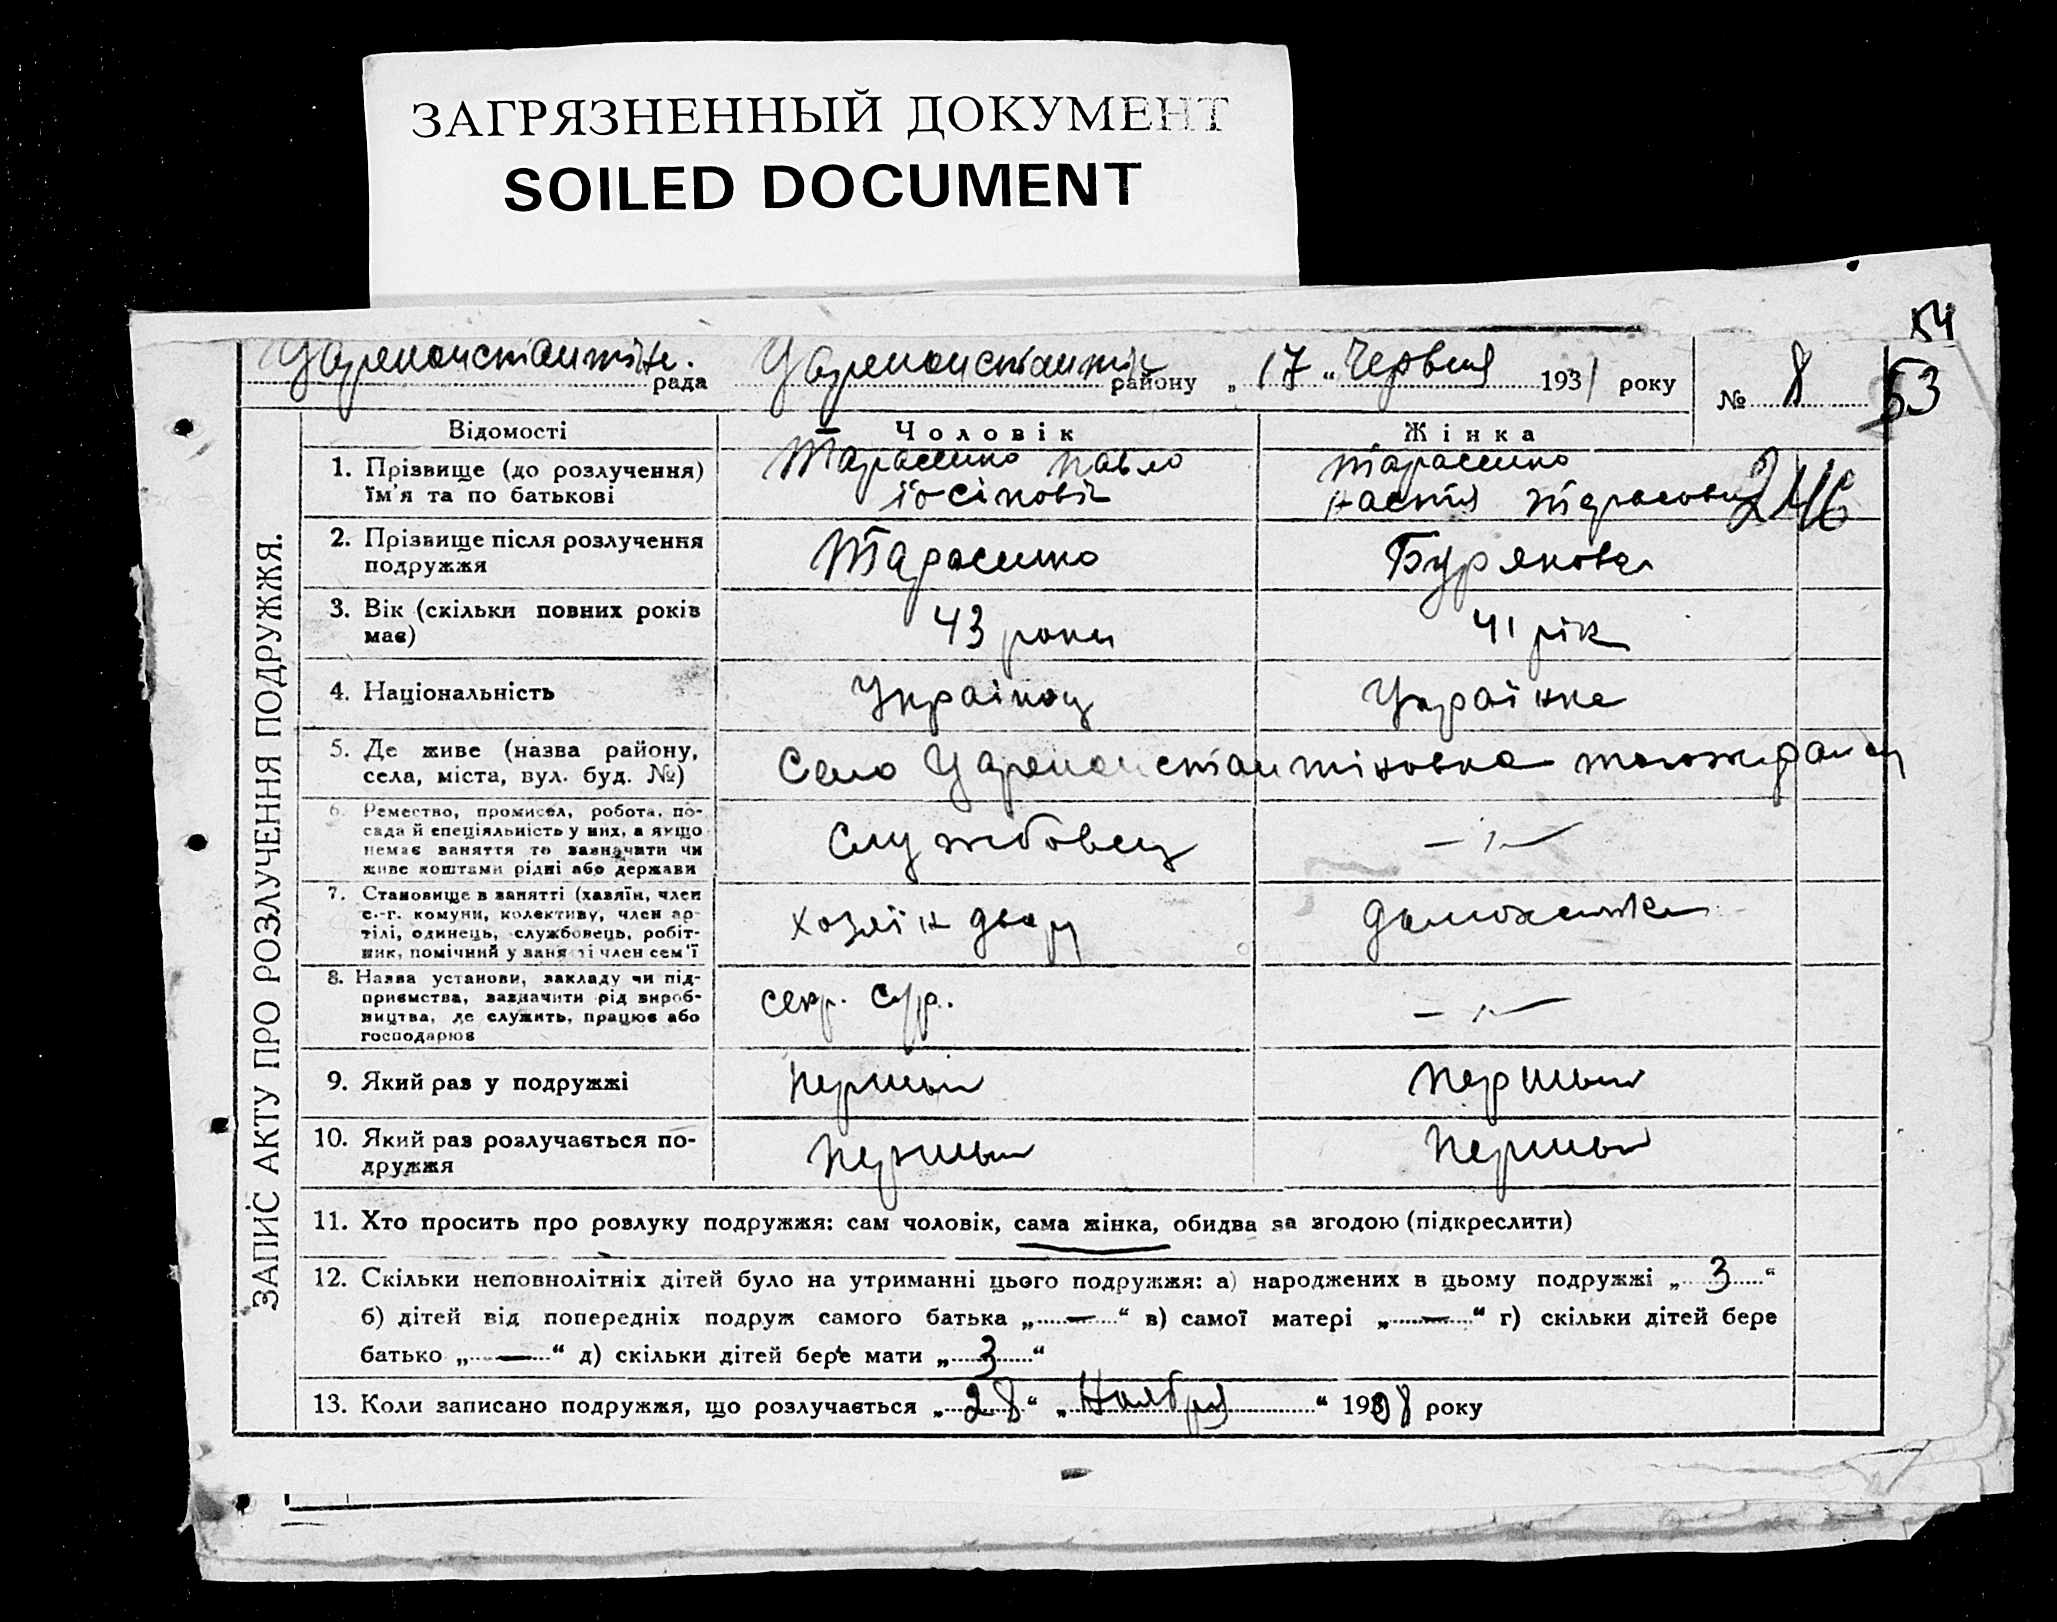 ЗАГРЯЗНЕННЫЙ ДОКУМЕНТ
SOILED DOCUMENT
54
53
Цареконстантін. рада Цареконстантін району „17“ Червня 1931 року № 8
ЗАПИС АКТУ ПРО РОЗЛУЧЕННЯ ПОДРУЖЖЯ.
Відомості Чоловік Жінка
1. Прізвище (до розлучення) Тарасенко Павло Тарасенко
їм'я та по батькові Настя Тарасовна 246
2. Прізвище після розлучення Тарасенко Бурякова
подружжя
3. Вік (скільки повних років 43 роки 41 рік
має)
4. Національність Украінец Українка
5. Де живе (назва району, Село Цареконстантіновка
села, міста, вул. буд. №)
6. Ремество, промисел, робота, по-
сада й спеціяльність у них, а якщо Службовец —"—
немає заняття то зазначити чи
живе коштами рідні або держави
7. Становище в занятті (хазяїн, член
с.-г. комуни, колективу, член ар- хозяїн двору
тілі, одинець, службовець, робіт-
ник, помічний у занятті член сем'ї
8. Назва установи, закладу чи під-
приємства, зазначити рід вироб- секр. —"—
ництва, де служить, працює або
господарює
9. Який раз у подружжі первый первый
10. Який раз розлучається по- первый первый
дружжя
11. Хто просить про розлуку подружжя: сам чоловік, сама жінка, обидва за згодою (підкреслити)
12. Скільки неповнолітніх дітей було на утриманні цього подружжя: а) народжених в цьому подружжі „3“
б) дітей від попередніх подруж самого батька „—“ в) самої матері „—“ г) скільки дітей бере
батько „—“ д) скільки дітей бере мати „3“
13. Коли записано подружжя, що розлучається „28“ „Ноября“ 1908 року